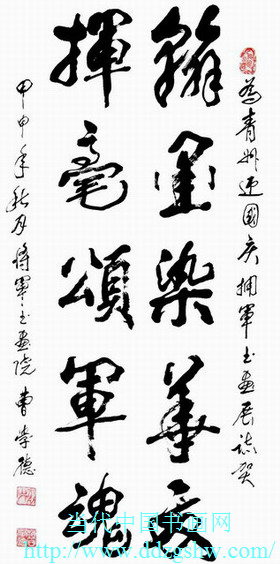 為青州迎國庆拥軍书画展志贺
翰墨染華发
揮毫頌軍魂
甲申年秋月将軍书画院曹学德
当代中国书画网
http://www.ddzgshw.com/